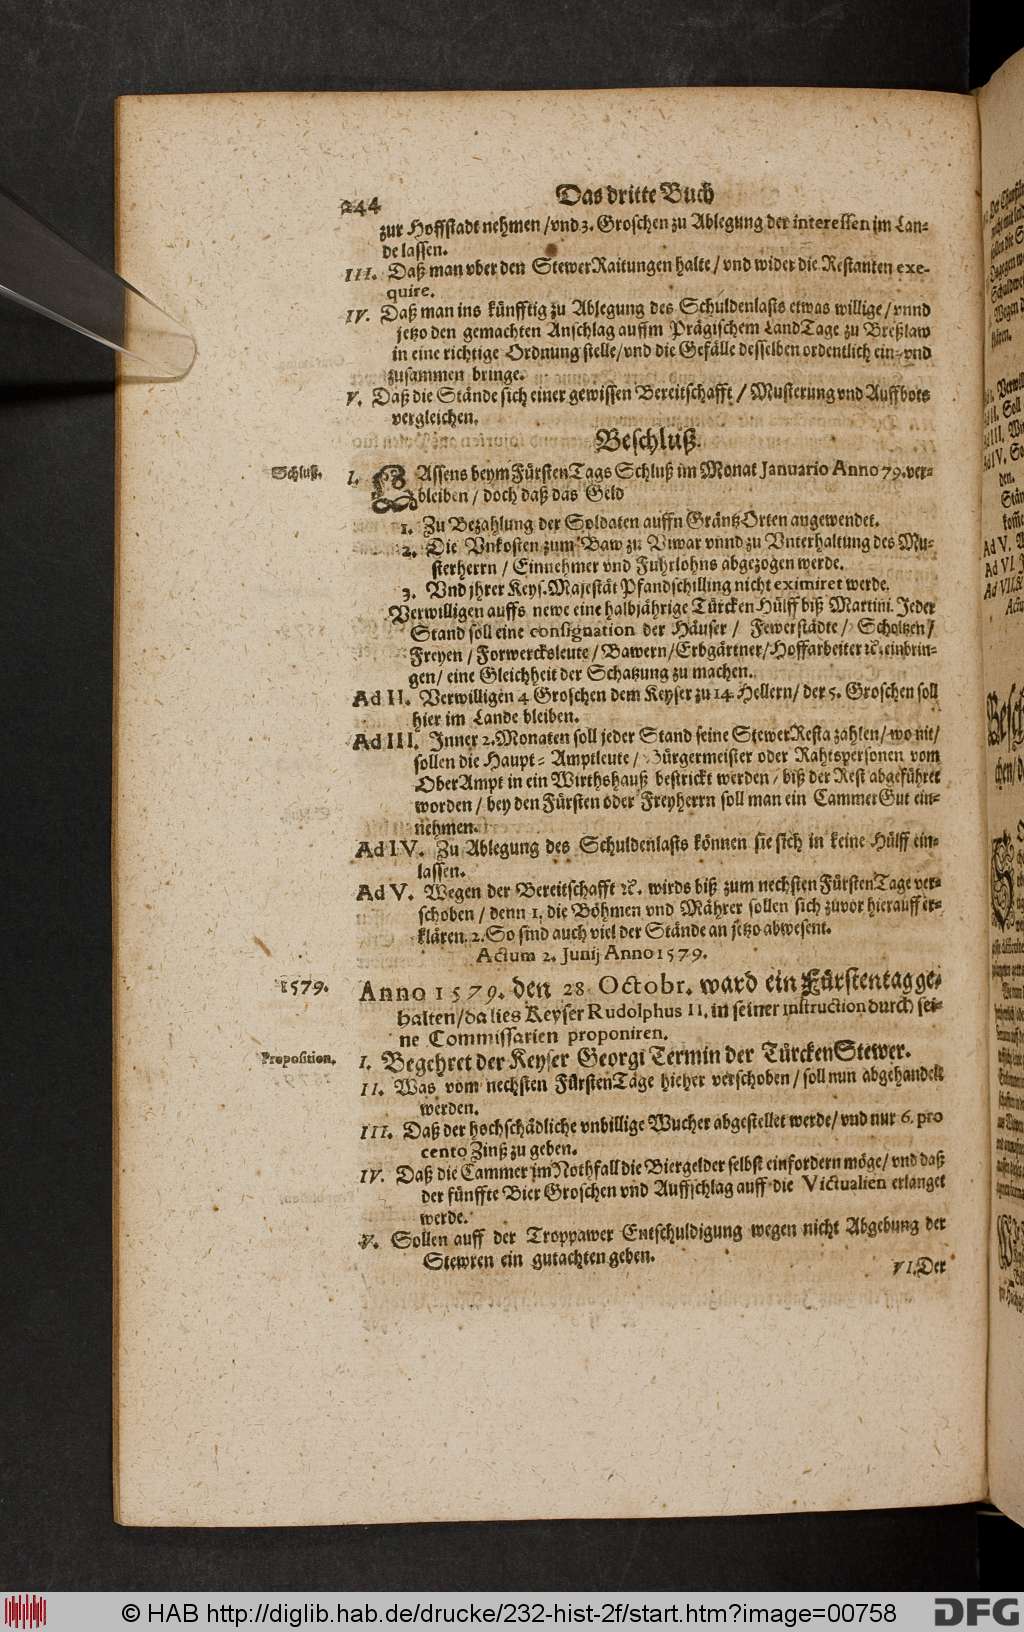 244
Das dritte Buch
zur Hoffstadt nehmen / vnd 3. Groschen zu Ablegung der interessen im Lan-
de lassen.
III. Daß man vber den StewerRaitungen halte / vnd wider die Restanten exe-
quire.
IV. Daß man ins künfftig zu Ablegung des Schuldenlasts etwas willige / vnnd
jetzo den gemachten Anschlag auffm Prägischem LandTage zu Breßlaw
in eine richtige Ordnung stelle / vnd die Gefälle desselben ordentlich ein- vnd
zusammen bringe.
V. Daß die Stände sich einer gewissen Bereitschafft / Musterung vnd Auffbots
vergleichen.
Beschluß.
Schluß.
I. Lassens beym FürstenTags Schluß im Monat Januario Anno 79. ver-
bleiben / doch daß das Geld
1. Zu Bezahlung der Soldaten auffn GräntzOrten angewendet.
2. Die Vnkosten zum Baw zu Viwar vnnd zu Vnterhaltung des Mu-
sterherrn / Einnehmer vnd Fuhrlohns abgezogen werde.
3. Vnd jhrer Keys. Majestät Pfandschilling nicht eximiret werde.
Verwilligen auffs newe eine halbjährige TürckenHülff biß Martini. Jeder
Stand soll eine consignation der Häuser / Fewerstädte / Scholtzen /
Freyen / Forwercksleute / Bawern / Erbgärtner / Hoffarbeiter ꝛc. einbrin-
gen / eine Gleichheit der Schatzung zu machen.
Ad II. Verwilligen 4 Groschen dem Keyser zu 14 Hellern / der 5. Groschen soll
hier im Lande bleiben.
Ad III. Inner 2. Monaten soll jeder Stand seine StewerResta zahlen / wo nit /
sollen die Haupt- Amptleute / Bürgermeister oder Rahtspersonen vom
OberAmpt in ein Wirthshauß bestrickt werden / biß der Rest abgeführet
worden / bey den Fürsten oder Freyherrn soll man ein CammerGut ein-
nehmen.
Ad IV. Zu Ablegung des Schuldenlasts können sie sich in keine Hülff ein-
lassen.
Ad V. Wegen der Bereitschafft ꝛc. wirds biß zum nechsten FürstenTage ver-
schoben / denn 1. die Böhmen vnd Mährer sollen sich zuvor hierauff er-
klären. 2. So sind auch viel der Stände an jetzo abwesent.
Actum 2. Junij Anno 1579.
1579.
Anno 1579. den 28 Octobr. ward ein Fürstentag ge-
halten / da lies Keyser Rudolphus II. in seiner instruction durch sei-
ne Commissarien proponiren.
Proposition.
I. Begehret der Keyser Georgi Termin der TürckenStewer.
II. Was vom nechsten FürstenTage hieher verschoben / soll nun abgehandelt
werden.
III. Daß der hochschädliche vnbillige Wucher abgestellet werde / vnd nur 6. pro
cento Zinß zu geben.
IV. Daß die Cammer im Nothfall die Biergelder selbst einfordern möge / vnd daß
der fünffte BierGroschen vnd Auffschlag auff die Victualien erlanget
werde.
V. Sollen auff der Troppawer Entschuldigung wegen nicht Abgebung der
Stewren ein gutachten geben.
VI. Der
© HAB http://diglib.hab.de/drucke/232-hist-2f/start.htm?image=00758
DFG